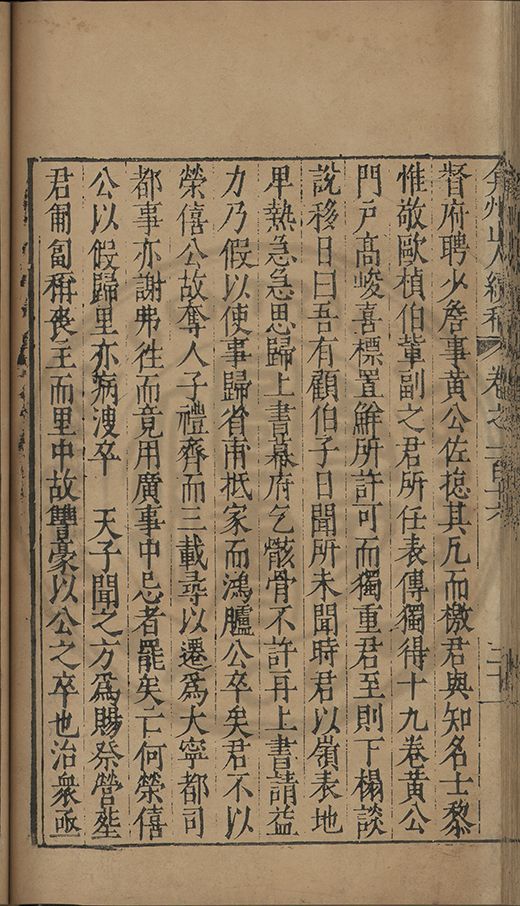 弇州山人續稿 卷之一百十六 二十一
督府聘少詹事黃公佐揔其凡而檄君與知名士黎
惟敬歐楨伯軰副之君所任表傳獨得十九卷黃公
門戸髙峻喜標置鮮所許可而獨重君至則下榻談
說移日曰吾有顧伯子日聞所未聞時君以嶺表地
甲熱急急思歸上書幕府乞骸骨不許再上書請益
力乃假以使事歸省甫抵家而鴻臚公卒矣君不以
榮僖公故奪人子禮齊而三載尋以遷爲大寧都司
都事亦謝弗徃而竟用廣事中忌者罷矣亡何榮僖
公以假歸里亦病溲卒 天子聞之方爲賜祭營塟
君匍匐稱喪主而里中故讐豪以公之卒也治衆亟